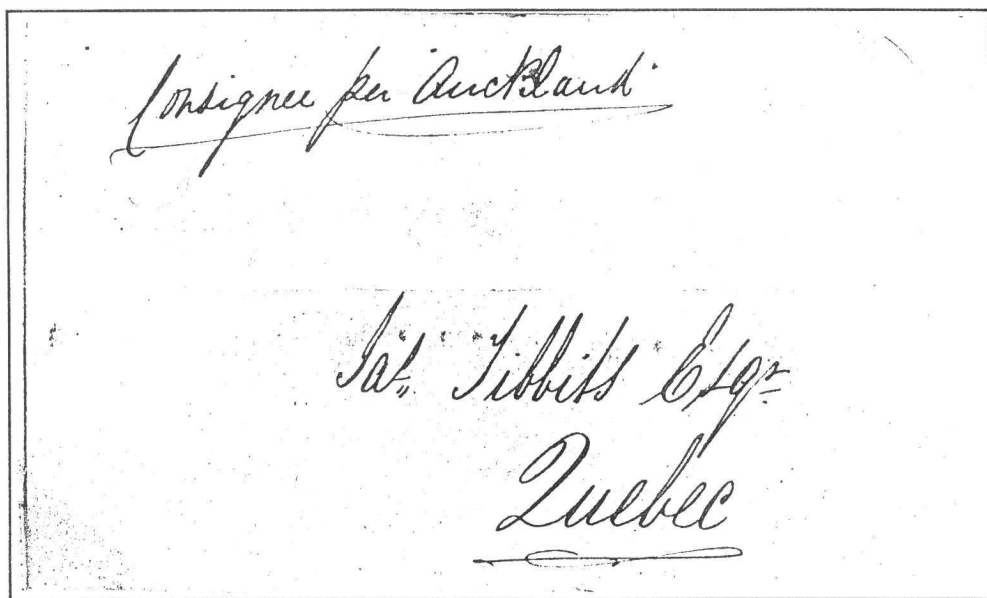 Consignee per Auckland
Jas. Tibbits Esqr
Quebec